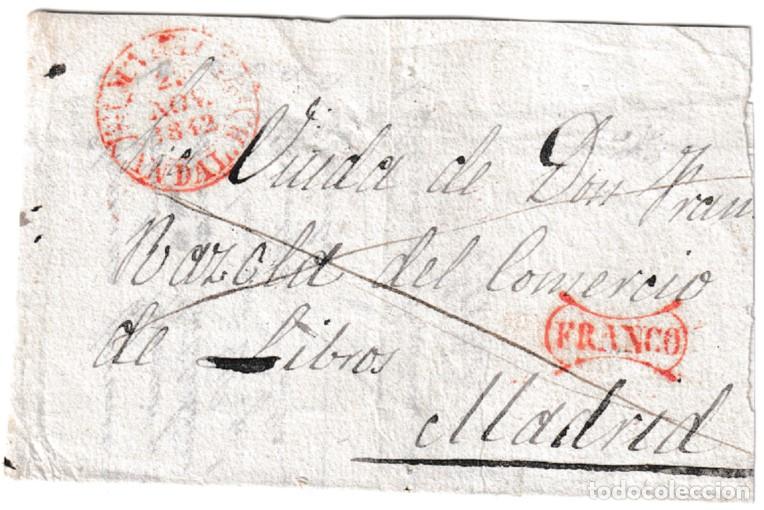 NOV.
1842
ANDAL.B.
Viuda de Don Fran
Razola del Comercio
de Libros
FRANCO
Madrid
todocoleccion